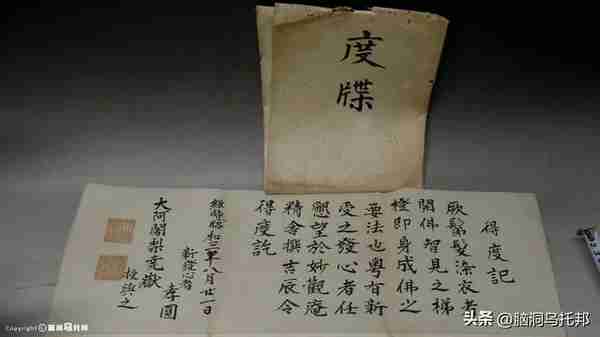 度牒
得度記
厥鬀髮染衣者
開佛智見之梯
橙即身成佛之
要法也粤有新
受之發心者任
懇望於妙觀庵
精舍撰吉辰令
得度訖
維時昭和三年八月廿一日
新發心者
孝圓
大阿闍梨亮嶽
授與之
Copyright©脑洞乌托邦
头条 @脑洞乌托邦